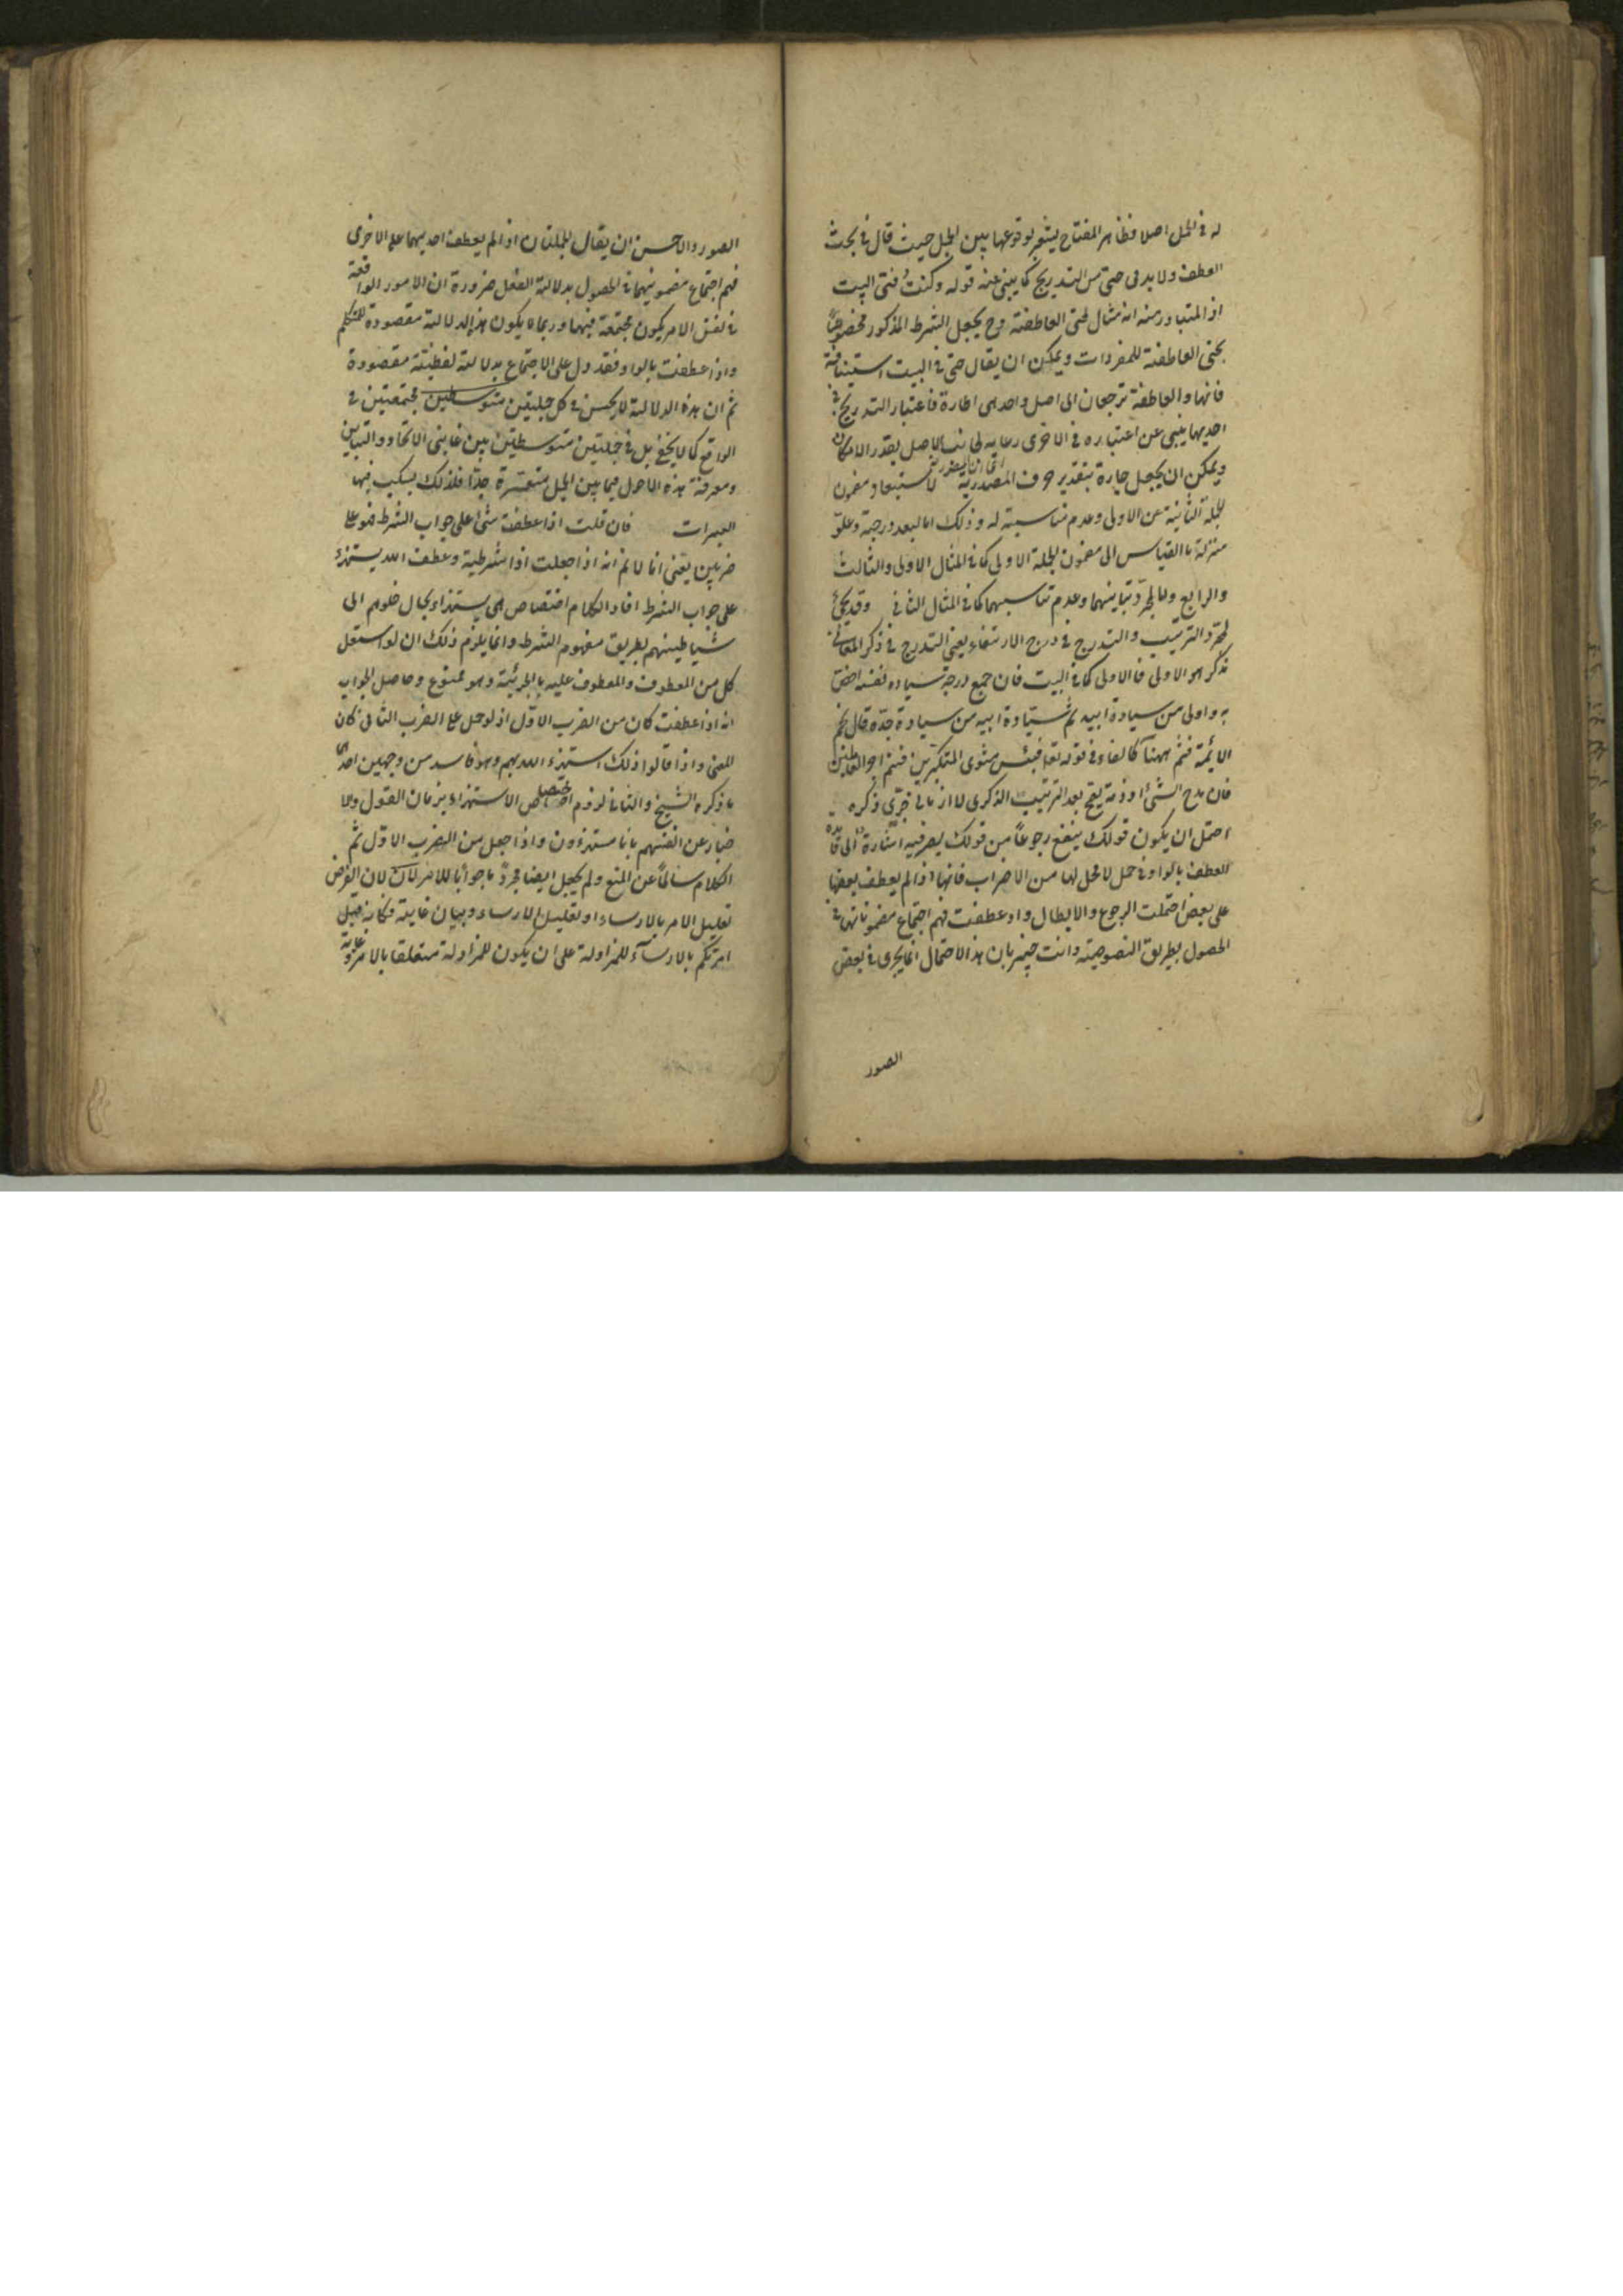 له في الجمل اصلا فظاهر المفتاح يشعر بوقوعها بين الجمل حيث قال في بحث
العطف ولا بد في حتى من التدريج كما يبنى عنه قوله وكنت فتى البيت
اذ المتبادر منه انه مثال لحتى العاطفة وح يجعل الشرط المذكور مخصوصا
بحتى العاطفة للمفردات ويمكن ان يقال حتى في البيت استينافية
فانها والعاطفة ترجعان الى اصل واحد هي الجارة فاعتبار التدريج في
احديهما ينبى عن اعتباره في الاخرى رعاية لجانب الاصل بقدر الامكان
ويمكن ان يجعل جارة بتقدير حرف المصدرية لاستبعاد مضمون
الجملة الثانية عن الاولى وعدم مناسبته له وذلك اما لبعد درجته وعلو
منزلته بالقياس الى مضمون الجملة الاولى كما في المثال الاول والثالث
والرابع واما لمجرد تباينهما وعدم تناسبهما كما في المثال الثاني وقد يجئ
لمجرد الترتيب والتدرج في درج الارتقاء يعني التدرج في ذكر المعاني
بذكر ما هو الاولى فالاولى كما في البيت فان جميع درجة سيادة نفسه اخص
به واولى من سيادة ابيه ثم سيادة ابيه من سيادة جده قال نجم
الائمة فثم ههنا كالفاء في قوله تع فبئس مثوى المتكبرين فنعم اجر العاملين
فان مدح الشئ او ذمه يقع بعد الترتيب الذكرى لا الزماني جرى ذكره
احتمل ان يكون قولك ينفع رجوعا من قولك يضر فيه اشارة الى فائدة
العطف بالواو في جمل لا محل لها من الاعراب فانها اذا لم يعطف بعضها
على بعض احتملت الرجوع والابطال واذ عطفت فهم اجتماع مضموناتها في
الحصول بطريق النصوصية وانت خبير بان هذا الاحتمال انما يجرى في بعض
الصور
الصور والاحسن ان يقال الجملتان اذا لم يعطف احديهما على الاخرى
فهم اجتماع مضمونيهما في الحصول بدلالة العقل ضرورة ان الامور الواقعة
في نفس الامر يكون مجتمعة فيها وربما لا يكون هذه الدلالة مقصودة للمتكلم
واذا عطفت بالواو فقد دل على الاجتماع بدلالة لفظية مقصودة
ثم ان هذه الدلالة لا يحسن في كل جملتين متوسطين مجتمعتين في
الواقع كما لا يخفى بل في جملتين متوسطتين بين غايتى الاتحاد والتباين
ومعرفة هذه الاحوال فيما بين الجمل متعسرة جدا فلذلك يسكب فيها
العبرات فان قلت اذا عطفت شئ على جواب الشرط فهو على
ضربين يعني انا لا نم انه اذا جعلت اذا شرطية وعطف الله يستهزء
على جواب الشرط افاد الكلام اختصاص استهزاء بحال خلوهم الى
شياطينهم بطريق مفهوم الشرط وانما يلزم ذلك ان لو استقل
كل من المعطوف والمعطوف عليه بالجزئية وهو ممنوع وحاصل الجواب
انه اذا عطفت كان من الضرب الاول اذ لو حمل على الضرب الثاني كان
المعنى واذا قالوا ذلك استهزء الله بهم وهو فاسد من وجهين احدهما
ما ذكره الشيخ والثاني لزوم اختصاص الاستهزاء بزمان القول والا
خبار عن انفسهم بانا مستهزءون واذا جعل من الضرب الاول تم
الكلام سالما عن المنع ولم يجعل ايضا مجزوما جوابا للامر لان الغرض
تعليل الامر بالارساء او تعليل الارساء وبيان غايته فكانه قيل
امرتكم بالارساء للمزاولة على ان يكون للمزاولة متعلقا بالامر وغاية